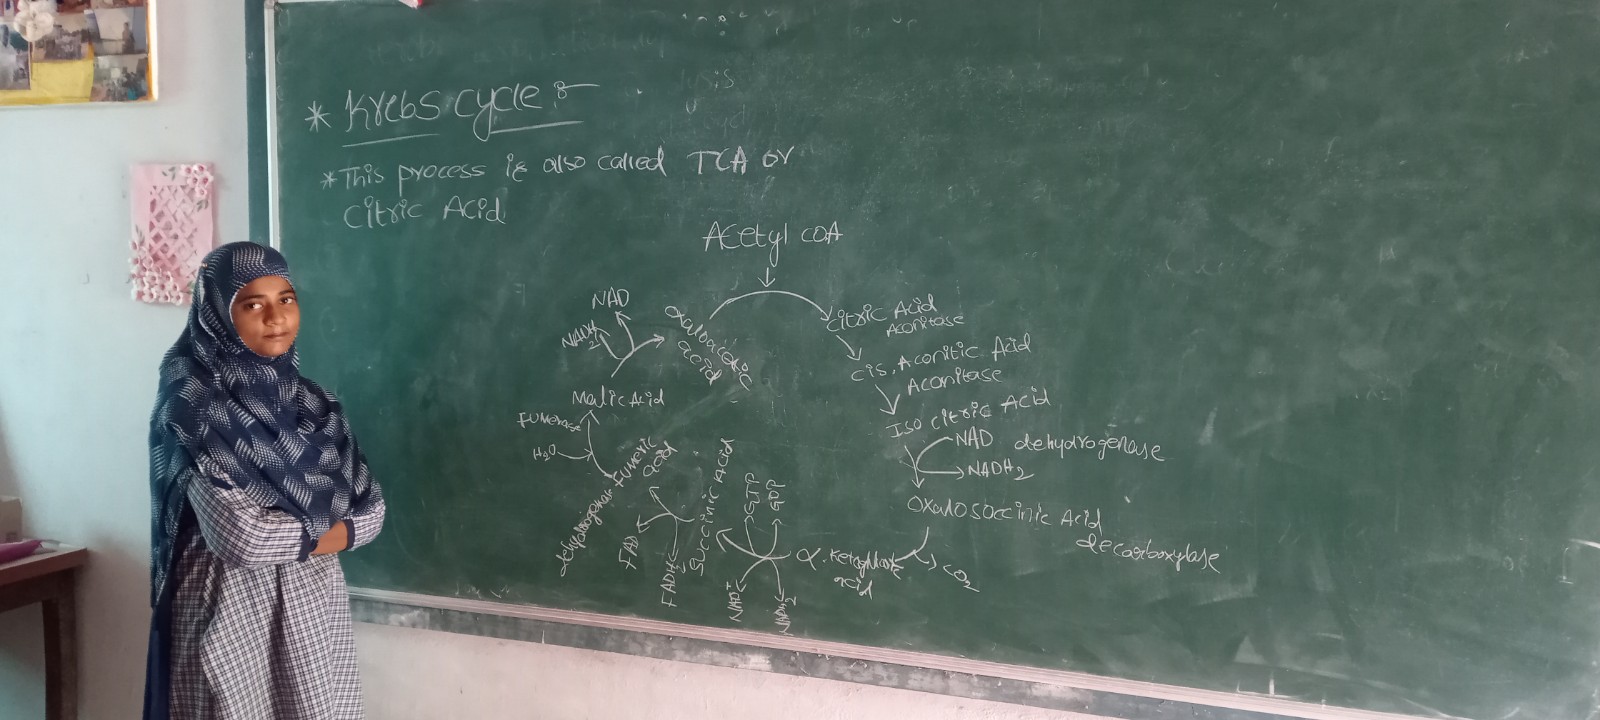 * Krebs cycle :-
* This process is also called TCA or
Citric Acid
Acetyl COA
Oxaloacetic
acid
Citric Acid
Aconitase
cis. Aconitic Acid
Aconitase
Iso citric Acid
NAD dehydrogenase
NADH2
Oxalosuccinic Acid
decarboxylase
CO2
α. Ketoglutaric
acid
GTP
GDP
NAD+
NADH2
Succinic Acid
FAD
FADH2
dehydrogenase
Fumeric
acid
Fumerase
H2O
Malic Acid
NADH2
NAD